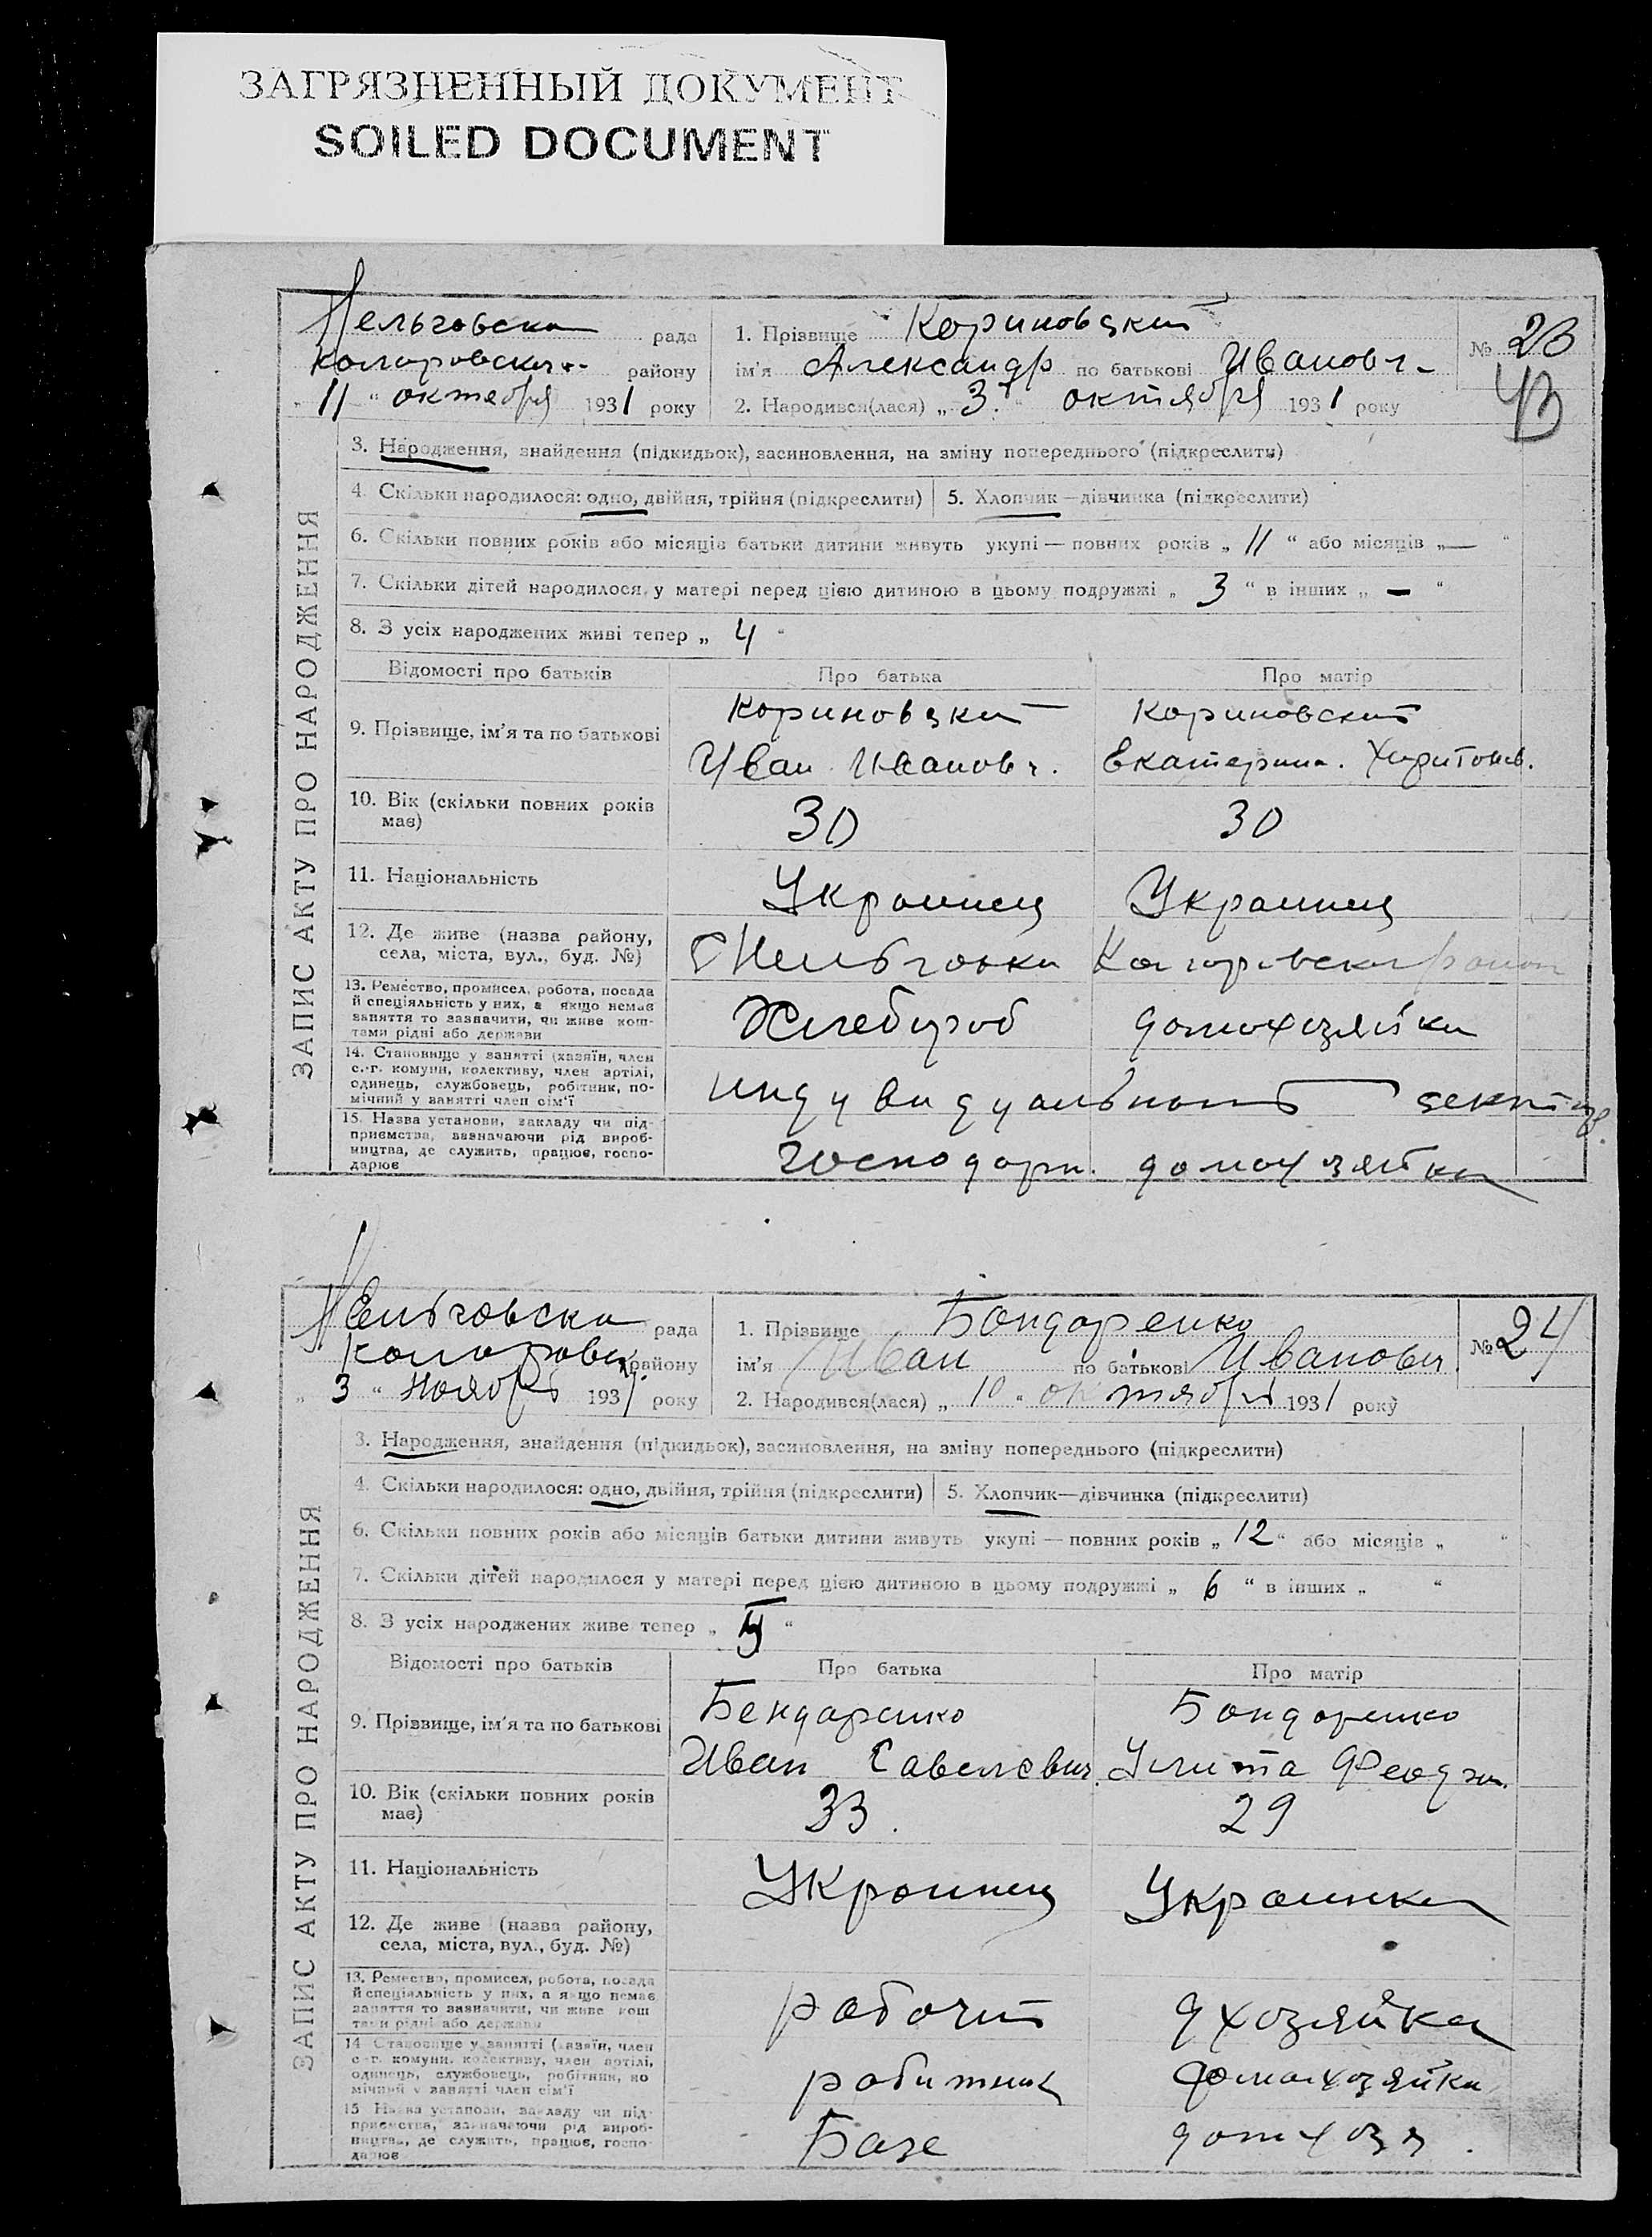 ЗАГРЯЗНЕННЫЙ ДОКУМЕНТ
SOILED DOCUMENT
ЗАПИС АКТУ ПРО НАРОДЖЕННЯ
рада
району
„ 11 “ октября 1931 року
1. Прізвище Кориновский
ім'я Александр по батькові Иванович
2. Народився(лася) „ 3 “ октября 1931 року
№ 23
43
3. Народження, знайдення (підкидьок), засиновлення, на зміну попереднього (підкреслити)
4. Скільки народилося: одно, двійня, трійня (підкреслити) 5. Хлопчик—дівчинка (підкреслити)
6. Скільки повних років або місяців батьки дитини живуть укупі — повних років „ 11 “ або місяців „ — “
7. Скільки дітей народилося у матері перед цією дитиною в цьому подружжі „ 3 “ в інших „ — “
8. З усіх народжених живі тепер „ 4 “
Відомості про батьків Про батька Про матір
9. Прізвище, ім'я та по батькові
Кориновский Кориновский
Иван Иванов. Екатерина. Харитонов.
10. Вік (скільки повних років має) 30 30
11. Національність Украинец Украинец
12. Де живе (назва району, села, міста, вул., буд. №)
район
13. Ремество, промисел, робота, посада й спеціяльність у них, а якщо немає заняття то зазначити, чи живе коштами рідні або держави
Хлебороб домохозяйка
14. Становище у занятті (хазяїн, член с.-г. комуни, колективу, член артілі, одинець, службовець, робітник, помічний у занятті член сім'ї
индувидуальный сектор
15. Назва установи, закладу чи підприємства, зазначаючи рід виробництва, де служить, працює, господарює
господарн. домохозяйка
ЗАПИС АКТУ ПРО НАРОДЖЕННЯ
рада
району
„ 3 “ ноября 1931 року
1. Прізвище Бондаренко
ім'я Иван по батькові Иванович
2. Народився(лася) „ 10 “ октября 1931 року
№ 24
3. Народження, знайдення (підкидьок), засиновлення, на зміну попереднього (підкреслити)
4. Скільки народилося: одно, двійня, трійня (підкреслити) 5. Хлопчик—дівчинка (підкреслити)
6. Скільки повних років або місяців батьки дитини живуть укупі — повних років „ 12 “ або місяців „ “
7. Скільки дітей народилося у матері перед цією дитиною в цьому подружжі „ 6 “ в інших „ “
8. З усіх народжених живе тепер „ “
Відомості про батьків Про батька Про матір
9. Прізвище, ім'я та по батькові
Бендаренко Бондаренко
Иван Савелевич. Улита
10. Вік (скільки повних років має) 33. 29
11. Національність Украинец Украинка
12. Де живе (назва району, села, міста, вул., буд. №)
13. Ремество, промисел, робота, посада й спеціяльність у них, а якщо немає заняття то зазначити, чи живе коштами рідні або держави
рабочий дхозяйка
14. Становище у занятті (хазяїн, член с.-г. комуни, колективу, член артілі, одинець, службовець, робітник, помічний у занятті член сім'ї
робитник домохозяйка
15. Назва установи, закладу чи підприємства, зазначаючи рід виробництва, де служить, працює, господарює
Базе домхозя.